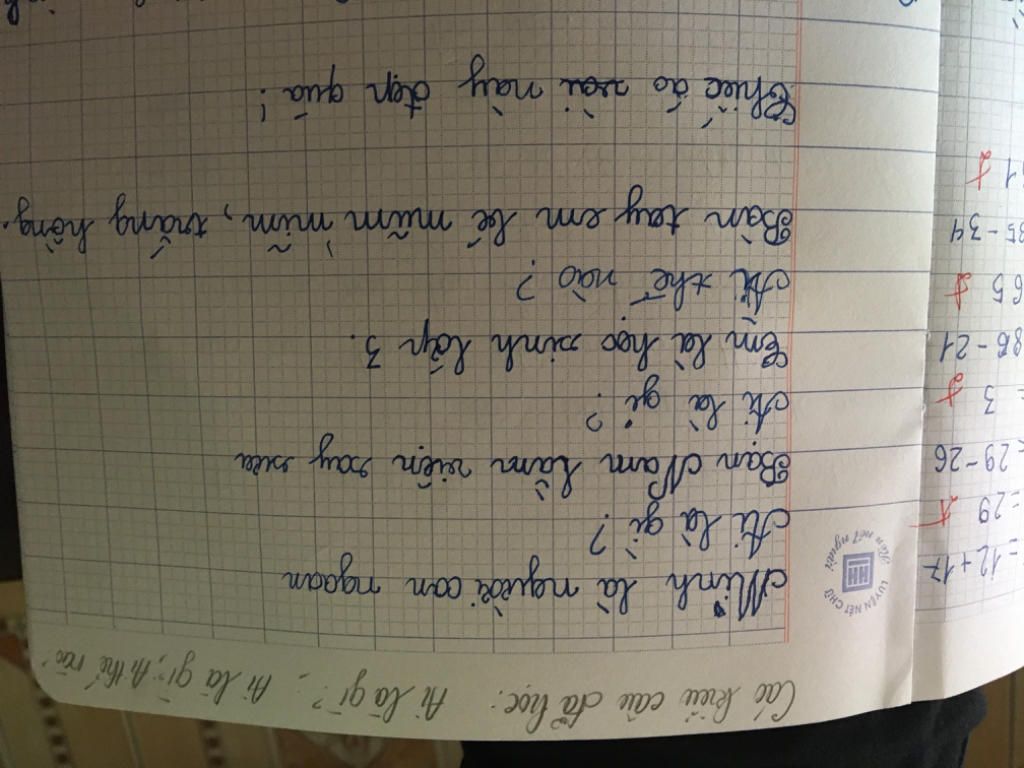 Các kiểu câu đã học: Ai là gì?, Ai là gì; Ai thế nào
Minh là người con ngoan
Ai là gì?
Bạn Nam làm viện xay sưa
Ai là gì?
Em là học sinh lớp 3.
Ai thế nào?
Bàn tay em bé mũm mĩm, trắng hồng.
Chiếc áo vài này đẹp quá!
LUYỆN NÉT CHỮ
HH
Rèn nết người
= 12 + 17
= 29
= 29 - 26
= 3
86 - 21
65
85 - 34
51